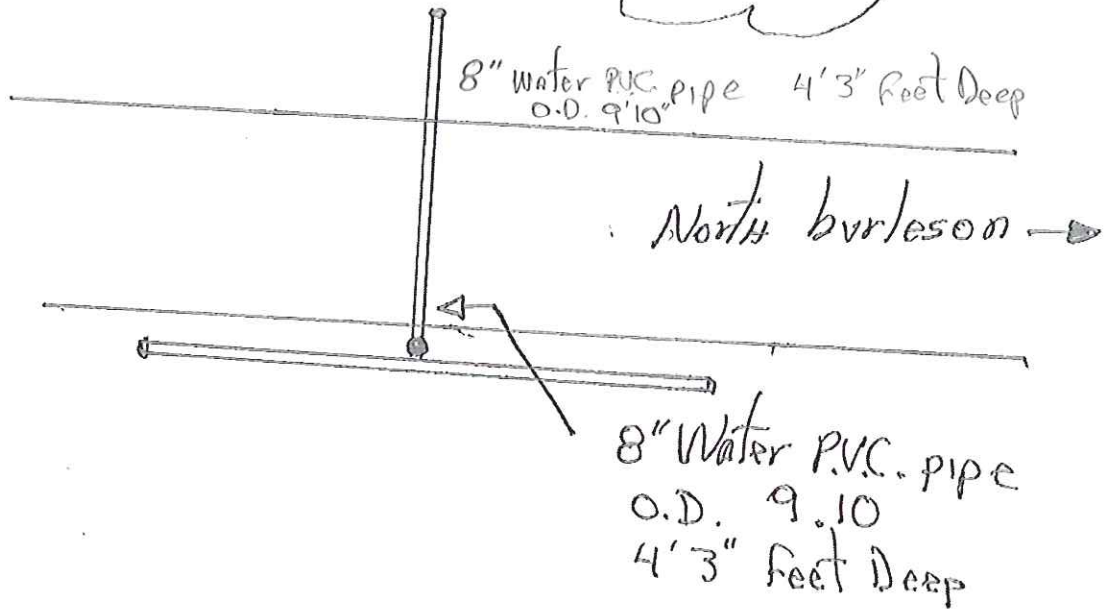 8" water P.V.C. pipe 4'3" feet Deep
O.D. 9'10"
North burleson
8" Water P.V.C. pipe
O.D. 9.10
4'3" feet Deep